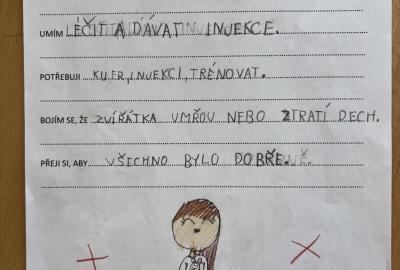 UMÍM LÉČIT A DÁVAT INJEKCE.
POTŘEBUJI KUFR, INJEKCI, TRÉNOVAT.
BOJÍM SE, ŽE ZVÍŘÁTKA UMŘOU NEBO ZTRATÍ DECH.
PŘEJI SI, ABY VŠECHNO BYLO DOBŘE.